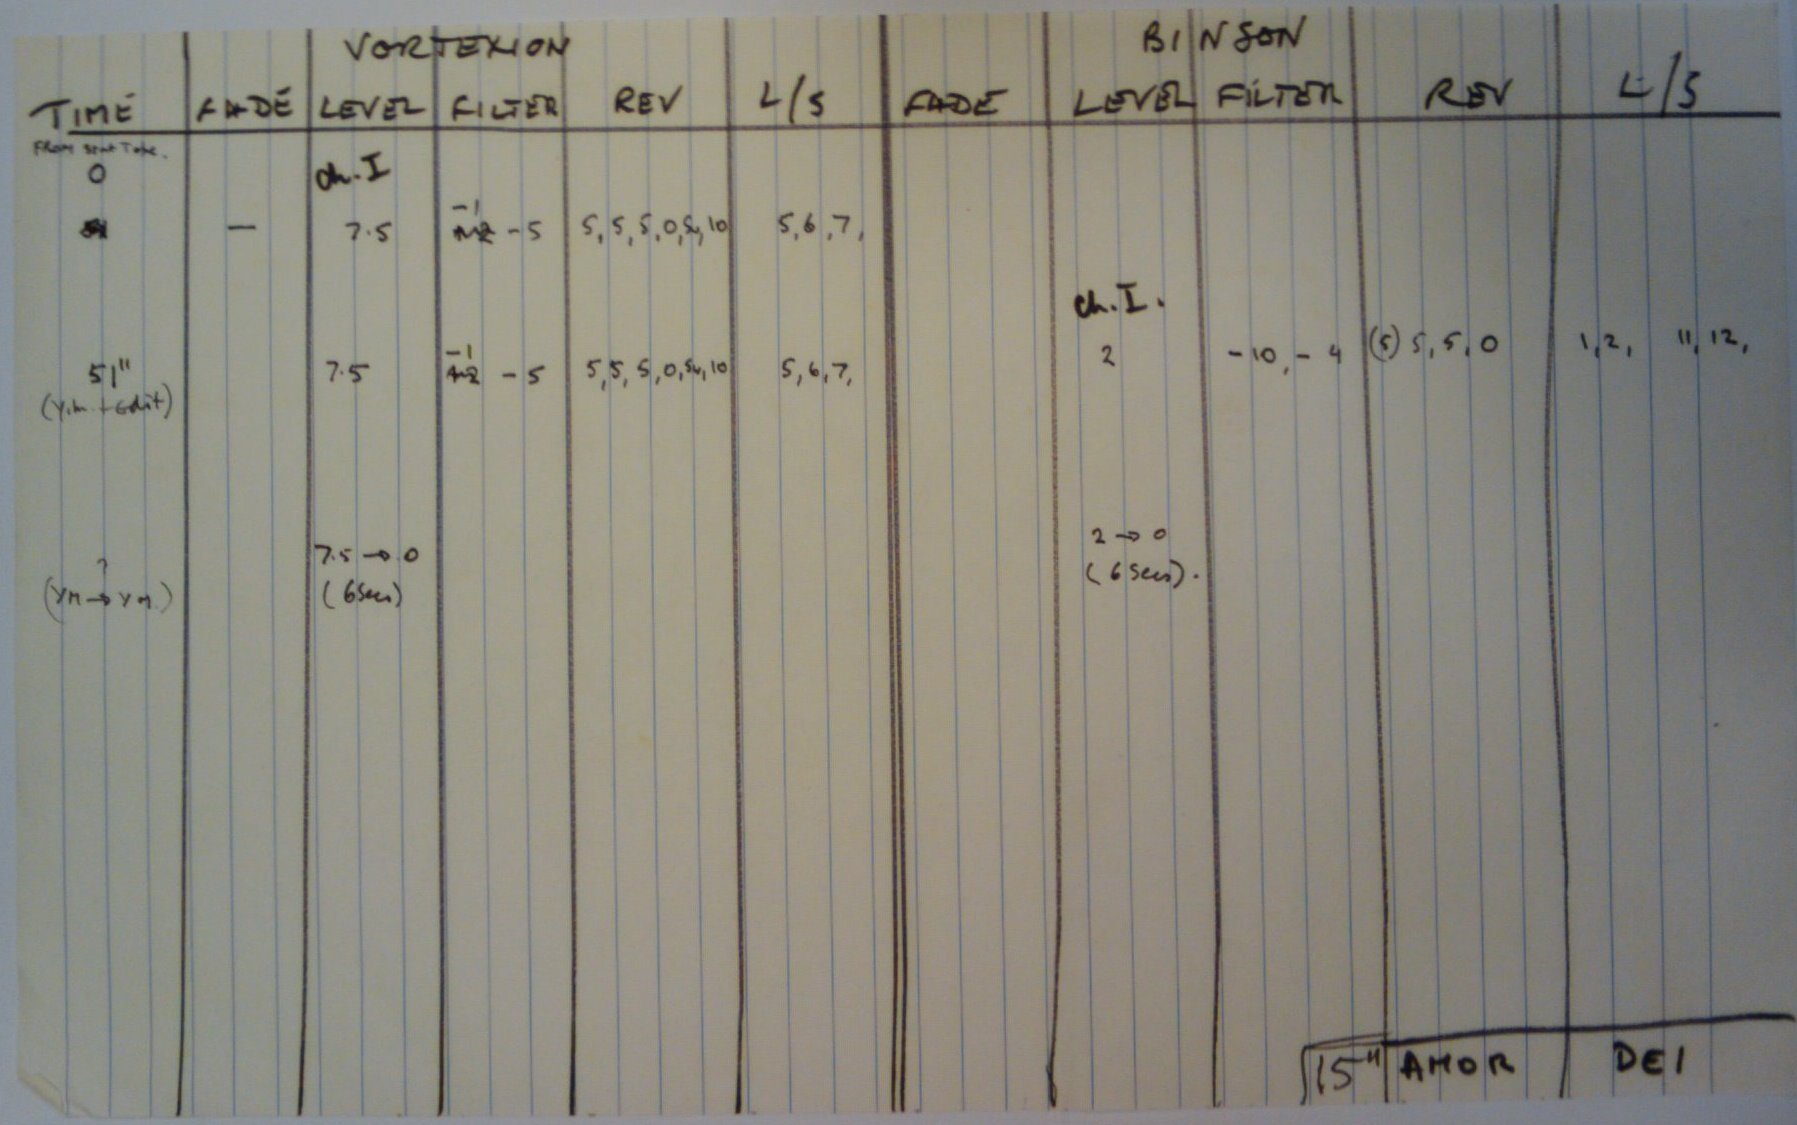 VORTEXION BINSON
TIME FADE LEVEL FILTER REV L/S FADE LEVEL FILTER REV L/S
FROM Start Tape.
0 ch.I
— 7.5 -1 -5 5,5,5,0,5,10 5,6,7,
ch.I.
51" 7.5 -1 -5 5,5,5,0,5,10 5,6,7, 2 -10,-4 (5) 5,5,0 1,2, 11,12,
(Y.M. + Edit)
? 7.5 → 0 2 → 0
(YM → YM) (6 Secs) (6 Secs).
15" AMOR DEI